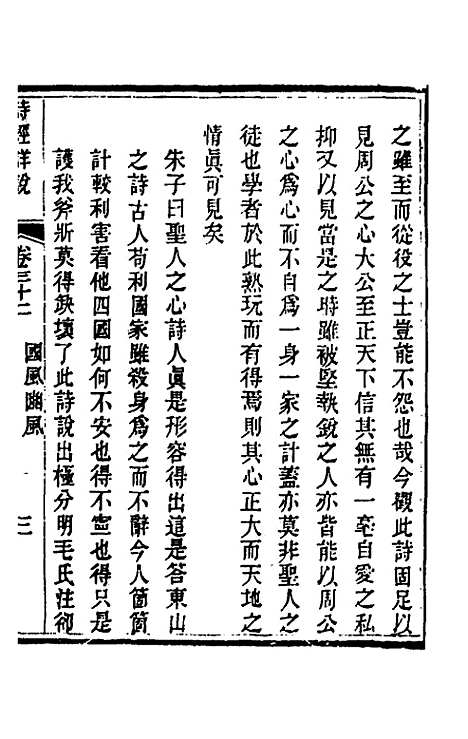 之雖至而從役之士豈能不怨也哉今觀此詩固足以
見周公之心大公至正天下信其無有一毫自愛之私
抑又以見當是之時雖被堅執銳之人亦皆能以周公
之心爲心而不自爲一身一家之計蓋亦莫非聖人之
徒也學者於此熟玩而有得焉則其心正大而天地之
情眞可見矣
朱子曰聖人之心詩人眞是形容得出這是答東山
之詩古人苟利國家雖殺身爲之而不辭今人箇箇
計較利害看他四國如何不安也得不寧也得只是
護我斧斨莫得缺壞了此詩說出極分明毛氏注卻
詩經詳說
卷三十二 國風豳風 三